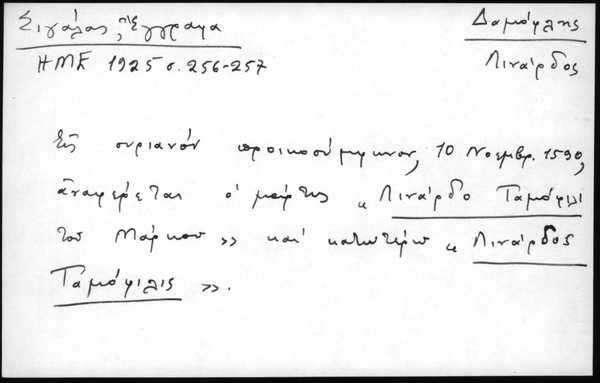 Σιγάλας, Ἔγγραφα
Δαμόφλης
ΗΜΕ 1925 σ. 256-257
Λινάρδος
Εἰς συριανόν προικοσύμφωνον, 10 Νοεμβρ. 1590,
ἀναφέρεται ὁ μάρτυς « Λινάρδο Ταμόφιλι
του Μάρκου » και κατωτέρω « Λινάρδος
Ταμόφιλις ».